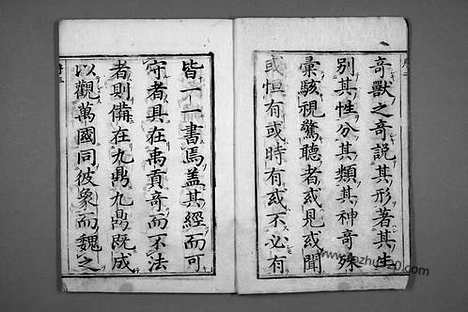 奇獸之奇說其形著其生
別其性分其類其神奇殊
彙駭視驚聽者或見或聞
或恒有或時有或不必有
皆一一書焉蓋其經而可
守者具在禹貢奇而不法
者則備在九鼎九鼎旣成
以觀萬國同彼象而魏之